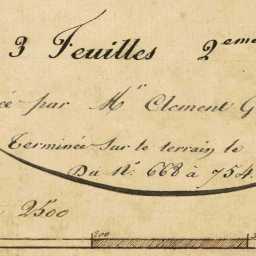 3 Feuilles 2eme
par Mr Clement G
Terminée sur le terrain le
Du No. 668 à 754.
2500
200